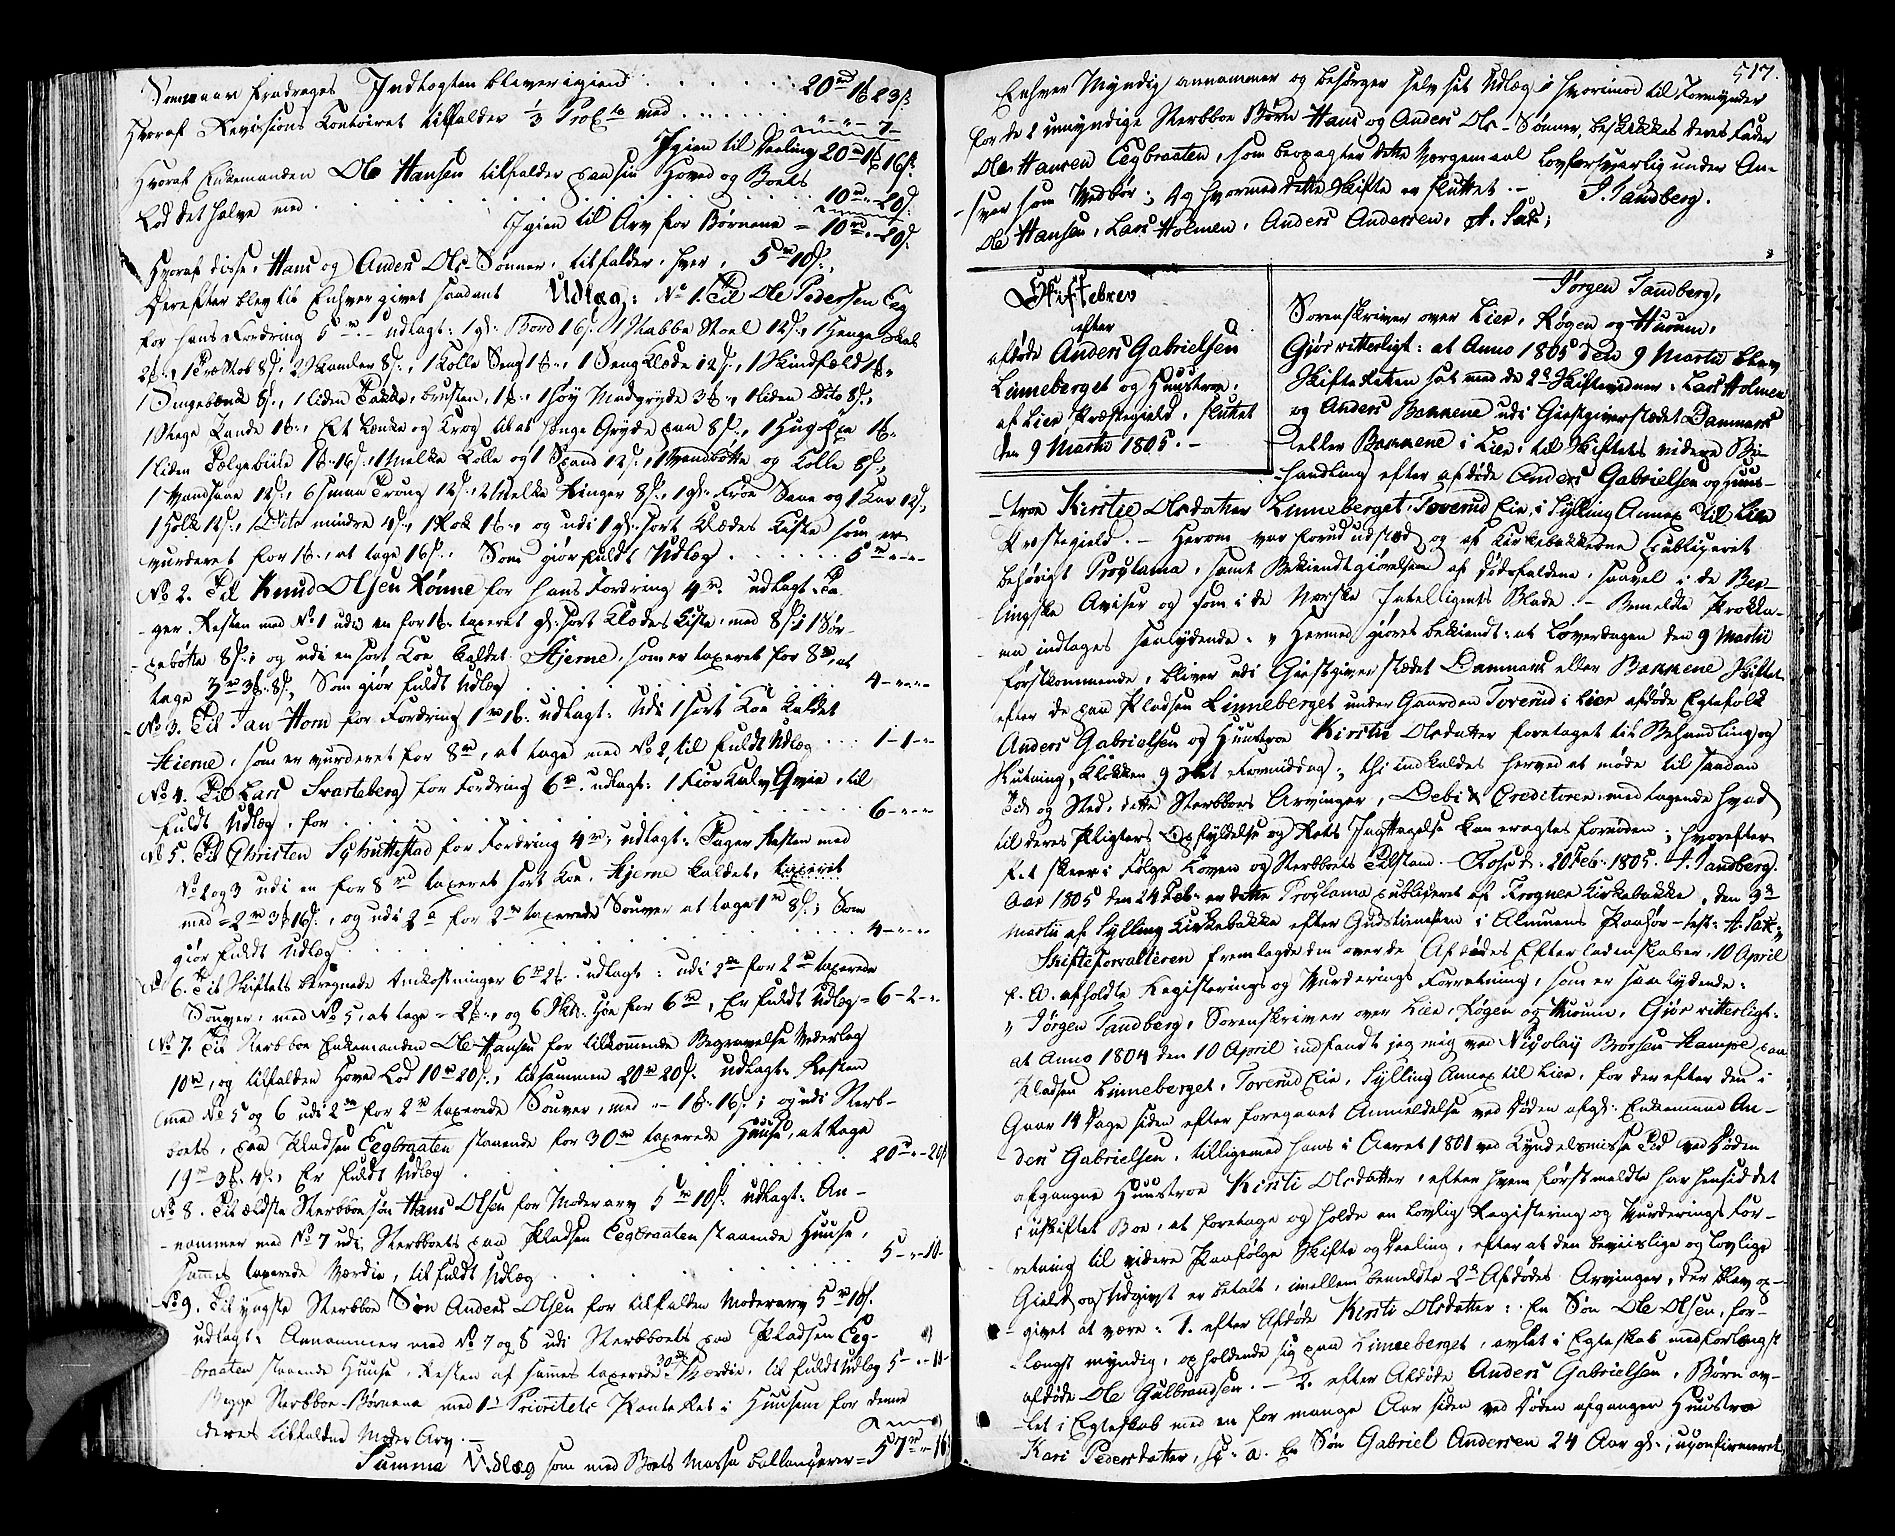 Som naar fradrages Indtægten bliver igien . . . . . . 20 rd 1 ₻ 23 ß
Hvoraf Revisions Contoiret tilfalder 1/3 Proc: to med . . . . . " - " - 7 -
Igien til Deeling 20 rd 1 ₻ 16 ß
Hvoraf Enkemanden Ole Hansen tilfalder paa sin Hoved og Boets
Lod det halve med . . . . . . 10 rd - 20 ß
Igien til Arv for Børnene = 10 rd - 20 ß
Hvoraf disse, Hans og Anders Ols-Sønner, tilfalder, hver, 5 rd 10 ß,
Derefter blev til Enhver givet saadant Udlæg: No 1. Til Ole Pedersen Eeg
for hans Fordring 5 rd - udlagt: 1 gl: Bord 16 ß, 1 Stabbe Stoel 12 ß, 1 Henge Skab
2 ₻, 1 8 ß, 2 8 ß, 1 Kolle Seng 1 ₻, 1 Seng Klæde 12 ß, 1 Skindfæld 1 ₻,
1 8 ß, 1 liden 1 ₻, 1 Høy Madgryde 3 ₻, 1 liden Dito 8 ß,
1 Stege Pande 1 ₻, Et Lenke og Krog til at henge Gryde paa 8 ß, 1 Hugøxe 1 ₻
1 liden Bølgebütte 1 ₻ 16 ß, 1 Melke Kolle og 1 Spand 12 ß, 1 Vandbøtte og Kolle 8 ß,
1 12 ß, 6 smaae Troug 12 ß, 2 Melke Ringer 8 ß, 1 gl: og 1 Kar 12 ß
1 Holk 12 ß, 1 Dito mindre 4 ß, 1 Rok 1 ₻, og udi 1 gl: sort Klædes Kiste som er
vurderet for 1 ₻, at tage 16 ß, Som giør fuldt Udlæg . . . . 5 rd - " - "
No 2. Til Knud Olsen Rønne for hans Fordring 4 rd udlagt: Ta-
ger Resten med No 1 udi en for 1 ₻ taxeret gl: sort Klædes Kiste, med 8 ß, 1 Sør-
pebøtte 8 ß, og udi en sort Koe kaldet Hjerne, som er taxeret for 8 rd, at
tage 3 rd 3 ₻ 8 ß, Som giør fuldt Udlæg . . . . . . 4 - " - "
No 3. Til Jan Horn for Fordring 1 rd 1 ₻ udlagt: Udi 1 sort Koe kaldet
Hierne, som er vurderet for 8 rd, at tage med No 2, til fuldt Udlæg . . . 1 - 1 - "
No 4. Til Lars Svarteberg for Fordring 6 rd udlagt: 1 Fiorkalv Qvie, til
fuldt Udlæg, for . . . . . . 6 - " - "
No 5. Til Christen Schuttestad for Fordring 4 rd, udlagt: Tager Resten med
No 2 og 3 udi en for 8 rd taxeret sort Koe, Hjerne kaldet, taxeret
med = 2 rd 3 ₻ 16 ß, og udi 2de for 2 rd taxerede Souver at tage 1 rd 8 ß, Som
giør fuldt Udlæg . . . . . . 4 - " - "
No 6. Til Skiftets beregnede Omkostninger 6 rd 2 ₻ udlagt: udi 2de for 2 rd taxerede
Souver, med No 5, at tage - 2 ₻, og 6 Høe for 6 rd, Er fuldt Udlæg = 6 - 2 - "
No 7. Til Sterboe Enkemanden Ole Hansen for tilkommende Begravelse Vederlag
10 rd, og tilfalden Hoved Lod 10 rd 20 ß, tilsammen 20 rd 20 ß udlagt: Resten
med No 5 og 6 udi 2de for 2 rd taxerede Souver, med - 1 ₻ 16 ß; og udi Sterb-
boets, paa Pladsen Eegbraaten staaende for 30 rd taxerede Huuse, at tage
19 rd 3 ₻ 4 ß, Er fuldt Udlæg . . . . . . 20 rd - 20 ß
No 8. Til ældste Sterbboe søn Hans Olsen for Moderarv 5 rd 10 ß udlagt: An-
nammer med No 7 udi Sterbboets paa Pladsen Eegbraaten staaende Huuse,
sammes taxerede Værdie, til fuldt Udlæg . . . . . . 5 - " - 10 -
No 9. Til yngste Sterbboe Søn Anders Olsen for tilfalden Moderarv 5 rd 10 ß
udlagt: Annammer med No 7 og 8 udi Sterbboets paa Pladsen Eeg-
braaten staaende Huuse, Resten af sammes taxerede 30 rd Værdie, til fuldt Udlæg 5 - " - 10 -
Begge Sterbboe-Børnene med 1te Prioritets Pante Ret i Huusene for denne
deres tilfaldne Moder Arv. -
Summa Udlæg som med Boets Massa ballangerer = 57 rd - 16
517.
Enhver Myndig annammer og besørger selv sit Udlæg, hvorimod til Formynder
for de 2 umyndige Sterbboe Børn Hans og Anders Ols-Sønner, beskikkes deres Fader
Ole Hansen Eegbraaten, som beopagter dette Værgemaal Lovforsvarlig under An-
svar som Vedbør; Og hvormed dette Skifte er sluttet. - J. Tandberg.
Ole Hansen, Lars Holmen, Anders Andersen, A. Sax;
Skiftebrev
efter
afdøde Anders Gabrielsen
Linneberget og Huustroe,
af Lier Præstegield, sluttet
den 9 Martii 1805. -
Jørgen Tandberg,
Sorenskriver over Lier, Røgen og Hurum,
Giør vitterligt: at Anno 1805 den 9 Martii blev
Skifte Retten sat med de 2de Skiftevidner: Lars Holmen
og Anders Barnene udi Giestgiverstædet Danmark
eller Barnene i Lier, til Skiftets videre Be-
handling efter afdøde Anders Gabrielsen og Huus-
troe Kirstie Olsdatter Linneberget, Toverud Eie, i Sylling Annex til Lier
Præstegield. - Herom var forud udstæd og af Kirkebakkerne Publiceret
behørigt Proclama, samt Bekiendtgiørelsen af dødsfaldene, saavel i de Ber-
lingske Aviser og som i de Norske Intelligents Blade. - Bemeldte Prokla-
ma indtages saalydende: " Hermed giøres bekiendt: at Løverdagen den 9 Martii
førstkommende, bliver udi Giestgiverstædet Danmark eller Barnene Skiftet
efter de paa Pladsen Linneberget under Gaarden Toverud i Lier afdøde Egtefolk
Anders Gabrielsen og Huustroe Kirstie Olsdatter foretaget til Behandling og
Slutning, Klokken 9 slet Formiddag; thi indkaldes herved at møde til saadan
Tid og Sted, dette Sterbboes Arvinger, Debit & Creditorer, med tagende hvad
til deres Pligters Opfyldelse og Rets Iagttagelse kan eragtes fornøden; hvorefter
Ret skeer i Følge Loven og Sterboets Tilstand. Foss d: 20 Feb: 1805. J. Tandberg.
Aar 1805 den 24 Feb: er dette Proclama publiceret af Frogner Kirkebakke, den 3de
Martii af Sylling Kirkebakke efter Gudstienesten i Almuens Paahør - test: A: Sax:,
Skifteforvalteren fremlagde den over de Afdødes Efterladenskaber 10 April
f. A. afholdte Registerings og Vurderings Forretning, som er saalydende:
" Jørgen Tandberg, Sorenskriver over Lier, Røgen og Hurum, Giør vitterligt:
at Anno 1804 den 10 April indfandt jeg mig ved Nicolay Brorsen Hampe paa
Pladsen Linneberget, Toverud Eie, Sylling Annex til Lier, for der efter den i
Gaar 14 Dage siden efter foregaaet Anmeldelse ved Døden afgl: Enkemand An-
ders Gabrielsen, tilligemed hans i Aaret 1801 ved Kyndelsmisse Tid ved Døden
afgangne Huustroe Kirsti Olsdatter, efter hvem førstmeldte har hensiddet
i uskiftet Boe, at foretage og holde en lovlig Registering og Vurderings For-
retning til videre paafølge Skifte og Deeling, efter at den beviislige og lovlige
Gield og Udgivt er betalt, imellem bemeldte 2de Afdødes Arvinger, der blev op-
givet at være: 1. efter Afdøde Kirsti Olsdatter: En Søn Ole Olsen, for-
længst myndig, opholdende sig paa Linneberget, avlet i Egteskab med forlængst
afdøde Ole Gulbrandsen. - 2. efter Afdøde Anders Gabrielsen, Børn av-
let i Egteskab med en for mange Aar siden ved Døden afgangen Huustroe
Kari Pedersdatter, sc: a. En Søn Gabriel Andersen 24 Aar gl:, uconfirmeret